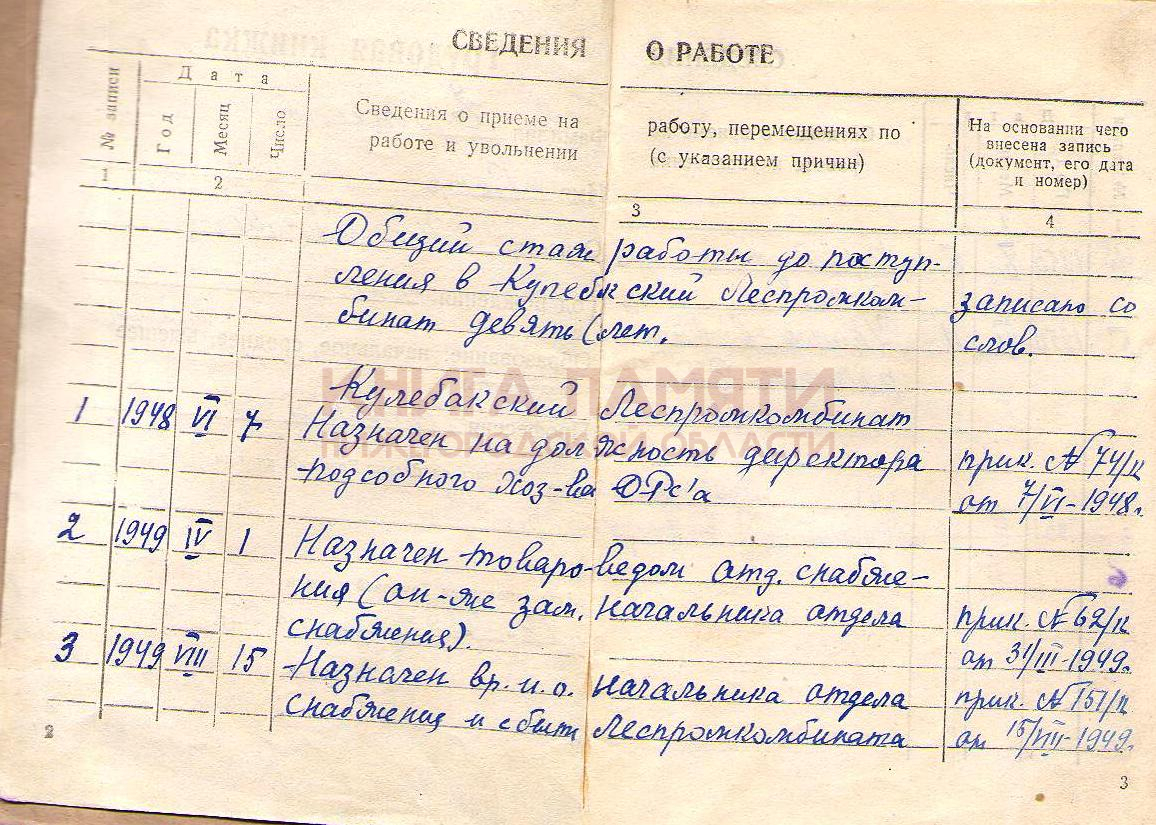 СВЕДЕНИЯ О РАБОТЕ
№ записи
Дата
Год
Месяц
Число
Сведения о приеме на работу, перемещениях по
работе и увольнении (с указанием причин)
На основании чего
внесена запись
(документ, его дата
и номер)
1 2 3 4
Общий стаж работы до поступ-
ления в Кулебакский Леспромком- записано со
бинат девять (лет. слов.
КНИГА ПАМЯТИ
НИЖЕГОРОДСКОЙ ОБЛАСТИ
Кулебакский Леспромкомбинат
1 1948 VI 7 Назначен на должность директора прик. № 74/к
подсобного хоз-ва ОРС'а от 7/VI-1948г.
2 1949 IV 1 Назначен товароведом отд. снабже-
ния (он-же зам. начальника отдела прик. № 62/к
снабжения). от 31/III-1949г.
3 1949 VIII 15 Назначен вр. и. о. начальника отдела прик. № 151/к
снабжения и сбыта Леспромкомбината от 15/VIII-1949г.
2
3